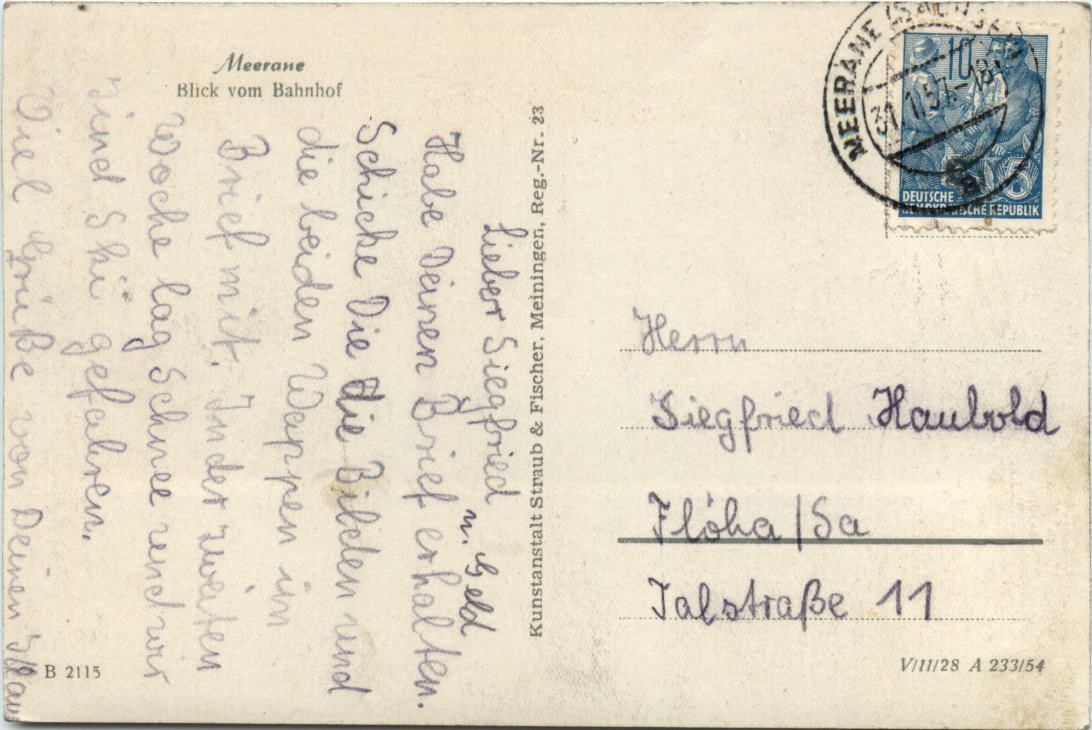 Meerane
Blick vom Bahnhof
Lieber Siegfried
Habe Deinen Brief u. Geld erhalten.
Schicke Die die Bilden und
die beiden Wappen im
Brief mit. In der zweiten
Woche lag Schnee und wir
sind Shi gefahren.
Viel Grüße von Deinen
B 2115
Kunstanstalt Straub & Fischer, Meiningen, Reg.-Nr. 23
MEERANE (SACHSEN)
31.1.57.-18
10
DEUTSCHE
DEMOKRATISCHE REPUBLIK
Herrn
Siegfried Haubold
Flöha/Sa
Talstraße 11
V/11/28 A 233/54